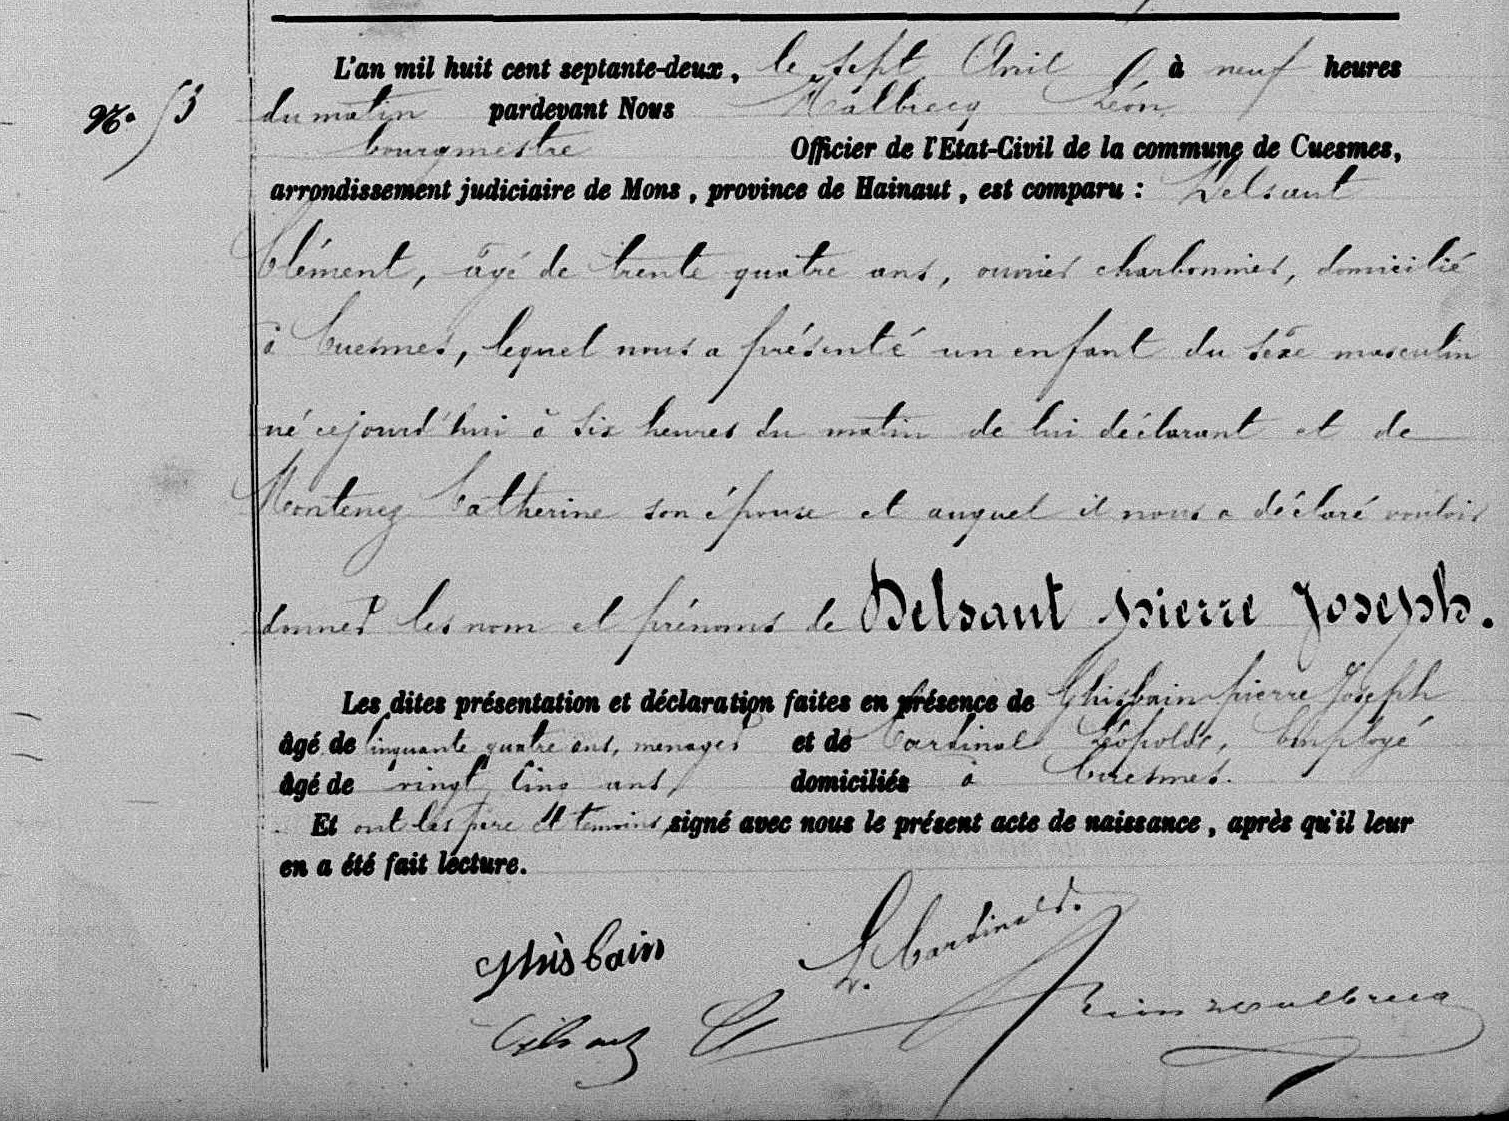 N.º 53
L'an mil huit cent septante-deux, le sept Avril à neuf heures
du matin pardevant Nous Malbrecq Léon,
bourgmestre Officier de l'Etat-Civil de la commune de Cuesmes,
arrondissement judiciaire de Mons, province de Hainaut, est comparu : Delsaut
Clément, âgé de trente quatre ans, ouvrier charbonnier, domicilié
à Cuesmes, lequel nous a présenté un enfant du sèxe masculin
né cejourd'hui à six heures du matin de lui déclarant et de
Montenez Catherine son épouse et auquel il nous a déclaré vouloir
donner les nom et prénoms de Delsaut pierre Joseph.
Les dites présentation et déclaration faites en présence de Ghisbain pierre Joseph
âgé de Cinquante quatre ans, menager et de Cardinal Léopold, Employé
âgé de vingt Cinq ans domiciliés à Cuesmes.
Et ont les père et témoins signé avec nous le présent acte de naissance, après qu'il leur
en a été fait lecture.
Ghisbain L. Cardinal
Delsaut Malbrecq